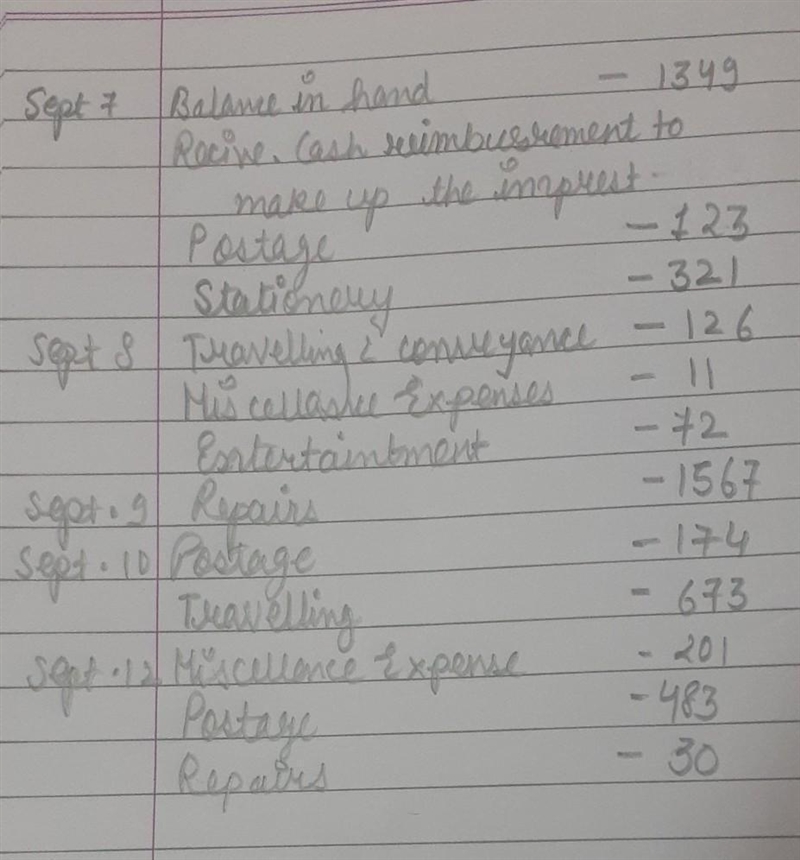 Sept 7 Balance in hand - 1349
Racive. Cash reimbursrement to
make up the imprest.
Postage - 123
Stationery - 321
Sept 8 Travelling & conveyance - 126
Miscellanee Expenses - 11
Entertaintment - 72
Sept. 9 Repairs - 1567
Sept. 10 Postage - 174
Travelling - 673
Sept. 12 Miscellence Expense - 201
Postage - 483
Repairs - 30